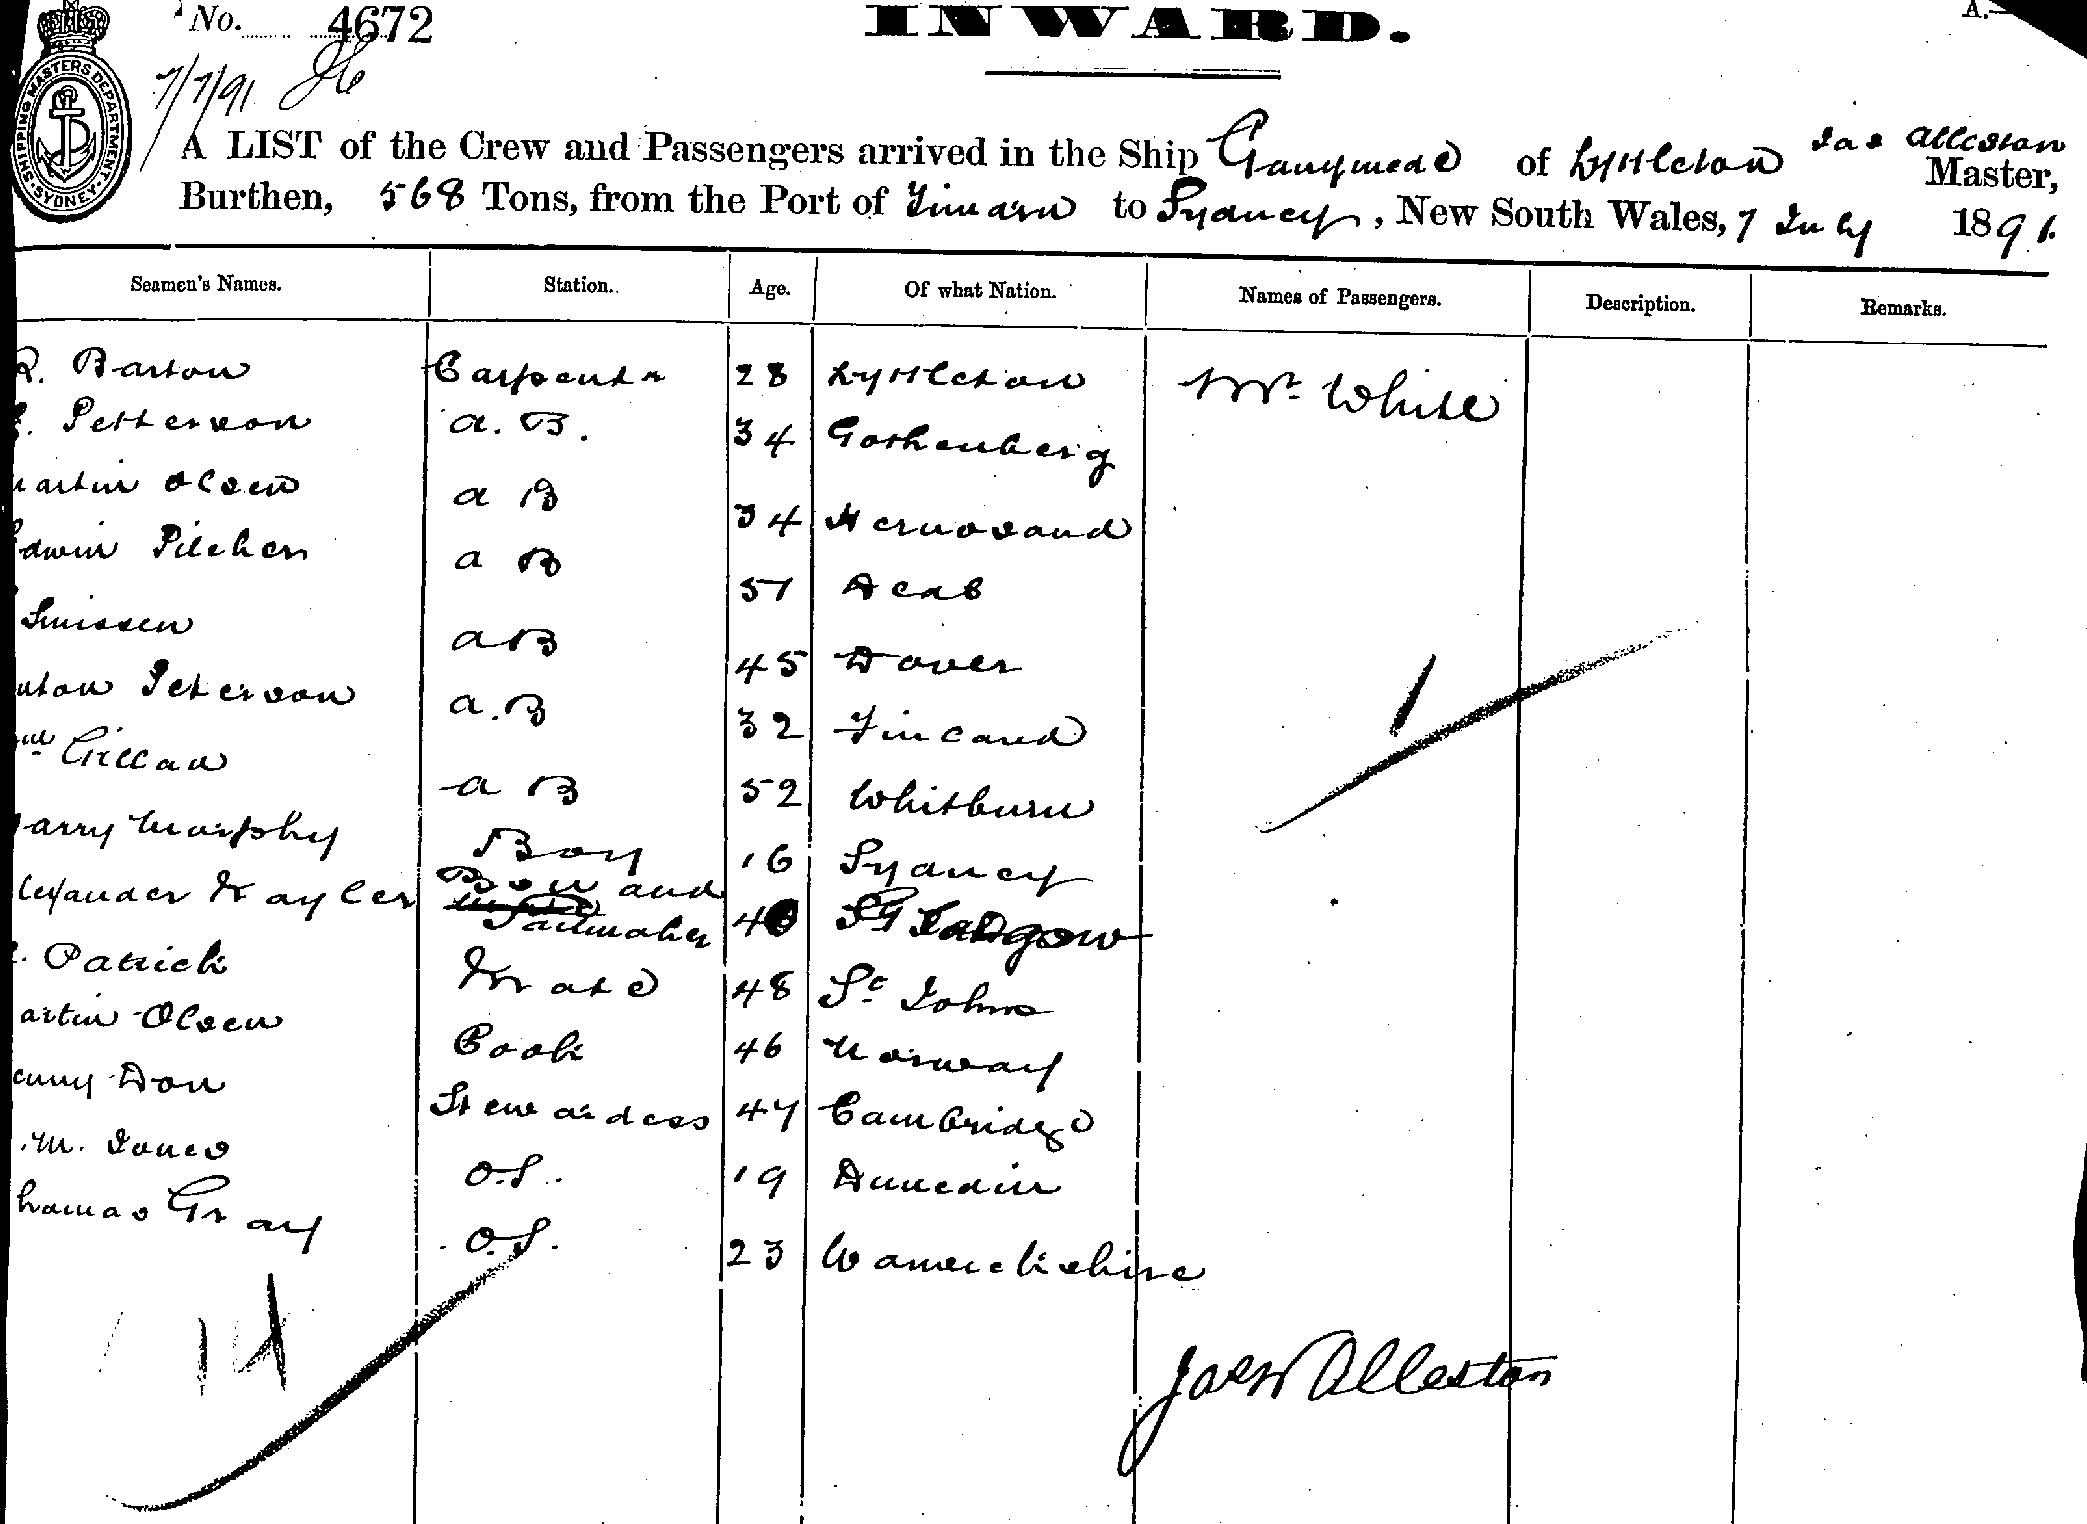 No. 4672
INWARD.
A.—
7/7/91
SHIPPING MASTERS DEPARTMENT SYDNEY
A LIST of the Crew and Passengers arrived in the Ship Ganymede of Lyttleton Jas Alleston Master,
Burthen, 568 Tons, from the Port of Timaru to Sydney, New South Wales, 7 July 1891.
Seamen's Names. Station. Age. Of what Nation. Names of Passengers. Description. Remarks.
R. Barton Carpenter 28 Lyttleton Mr. White
. Petterson A. B. 34 Gothenberg
artin Olsen A B 34 Hernosand
dwin Pilcher A B 57 Deal
Smissen A B 45 Dover
nton Peterson A. B 32 Finland
Wm Gillan A B 52 Whitburn
arry Murphy Boy 16 Sydney
lexander Naylor Bosn and Sailmaker 40 Glasgow
. Patrick Mate 48 St Johns
artin Olsen Cook 46 Norway
enny Don Stewardess 47 Cambridge
. M. Jones O.S. 19 Dunedin
homas Gray O.S. 23 Warwickshire
1
14
Jas W Alleston